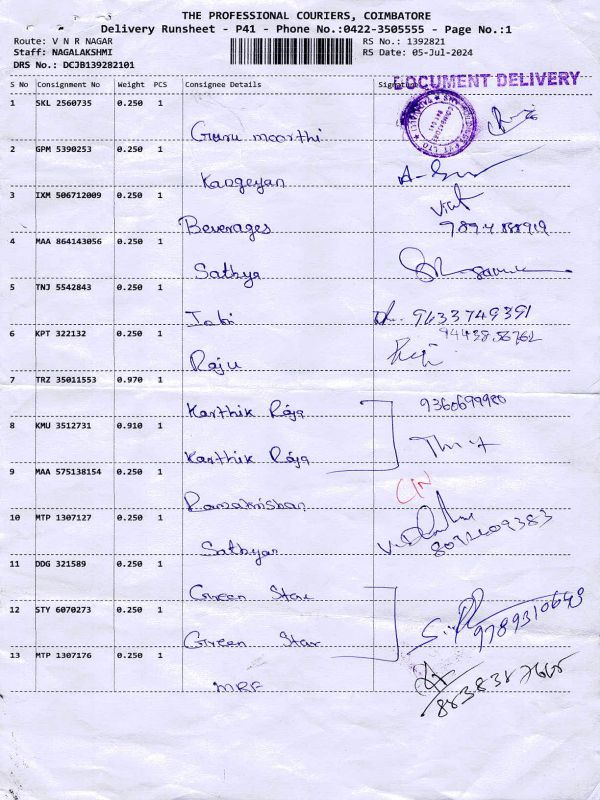 THE PROFESSIONAL COURIERS, COIMBATORE
Delivery Runsheet - P41 - Phone No.:0422-3505555 - Page No.:1
Route: V N R NAGAR RS No.: 1392821
Staff: NAGALAKSHMI RS Date: 05-Jul-2024
DRS No.: DCJB139282101
S No Consignment No Weight PCS Consignee Details Signature
DOCUMENT DELIVERY
1 SKL 2560735 0.250 1
Guru moorthi
2 GPM 5390253 0.250 1
Kangeyan
3 IXM 506712009 0.250 1
Beverages
4 MAA 864143056 0.250 1
Sathya
5 TNJ 5542843 0.250 1
Jabi 9433749391
6 KPT 322132 0.250 1
Raju
7 TRZ 35011553 0.970 1
Karthik Raja 9360699980
8 KMU 3512731 0.910 1
Karthik Raja
9 MAA 575138154 0.250 1
Ramakrishan
10 MTP 1307127 0.250 1
Sathyan
11 DDG 321589 0.250 1
Green Star
12 STY 6070273 0.250 1
Green Star 9789310643
13 MTP 1307176 0.250 1
MRF